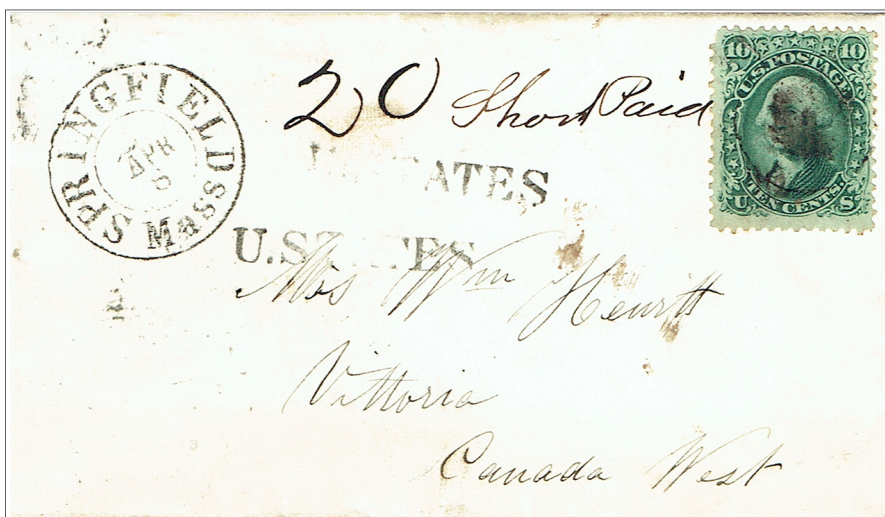 SPRINGFIELD Mass
APR
8
20 Short Paid
10 10
U.S. POSTAGE
TEN CENTS.
U S
ATES
U.STATES
Mrs Wm Hewitt
Vittoria
Canada West